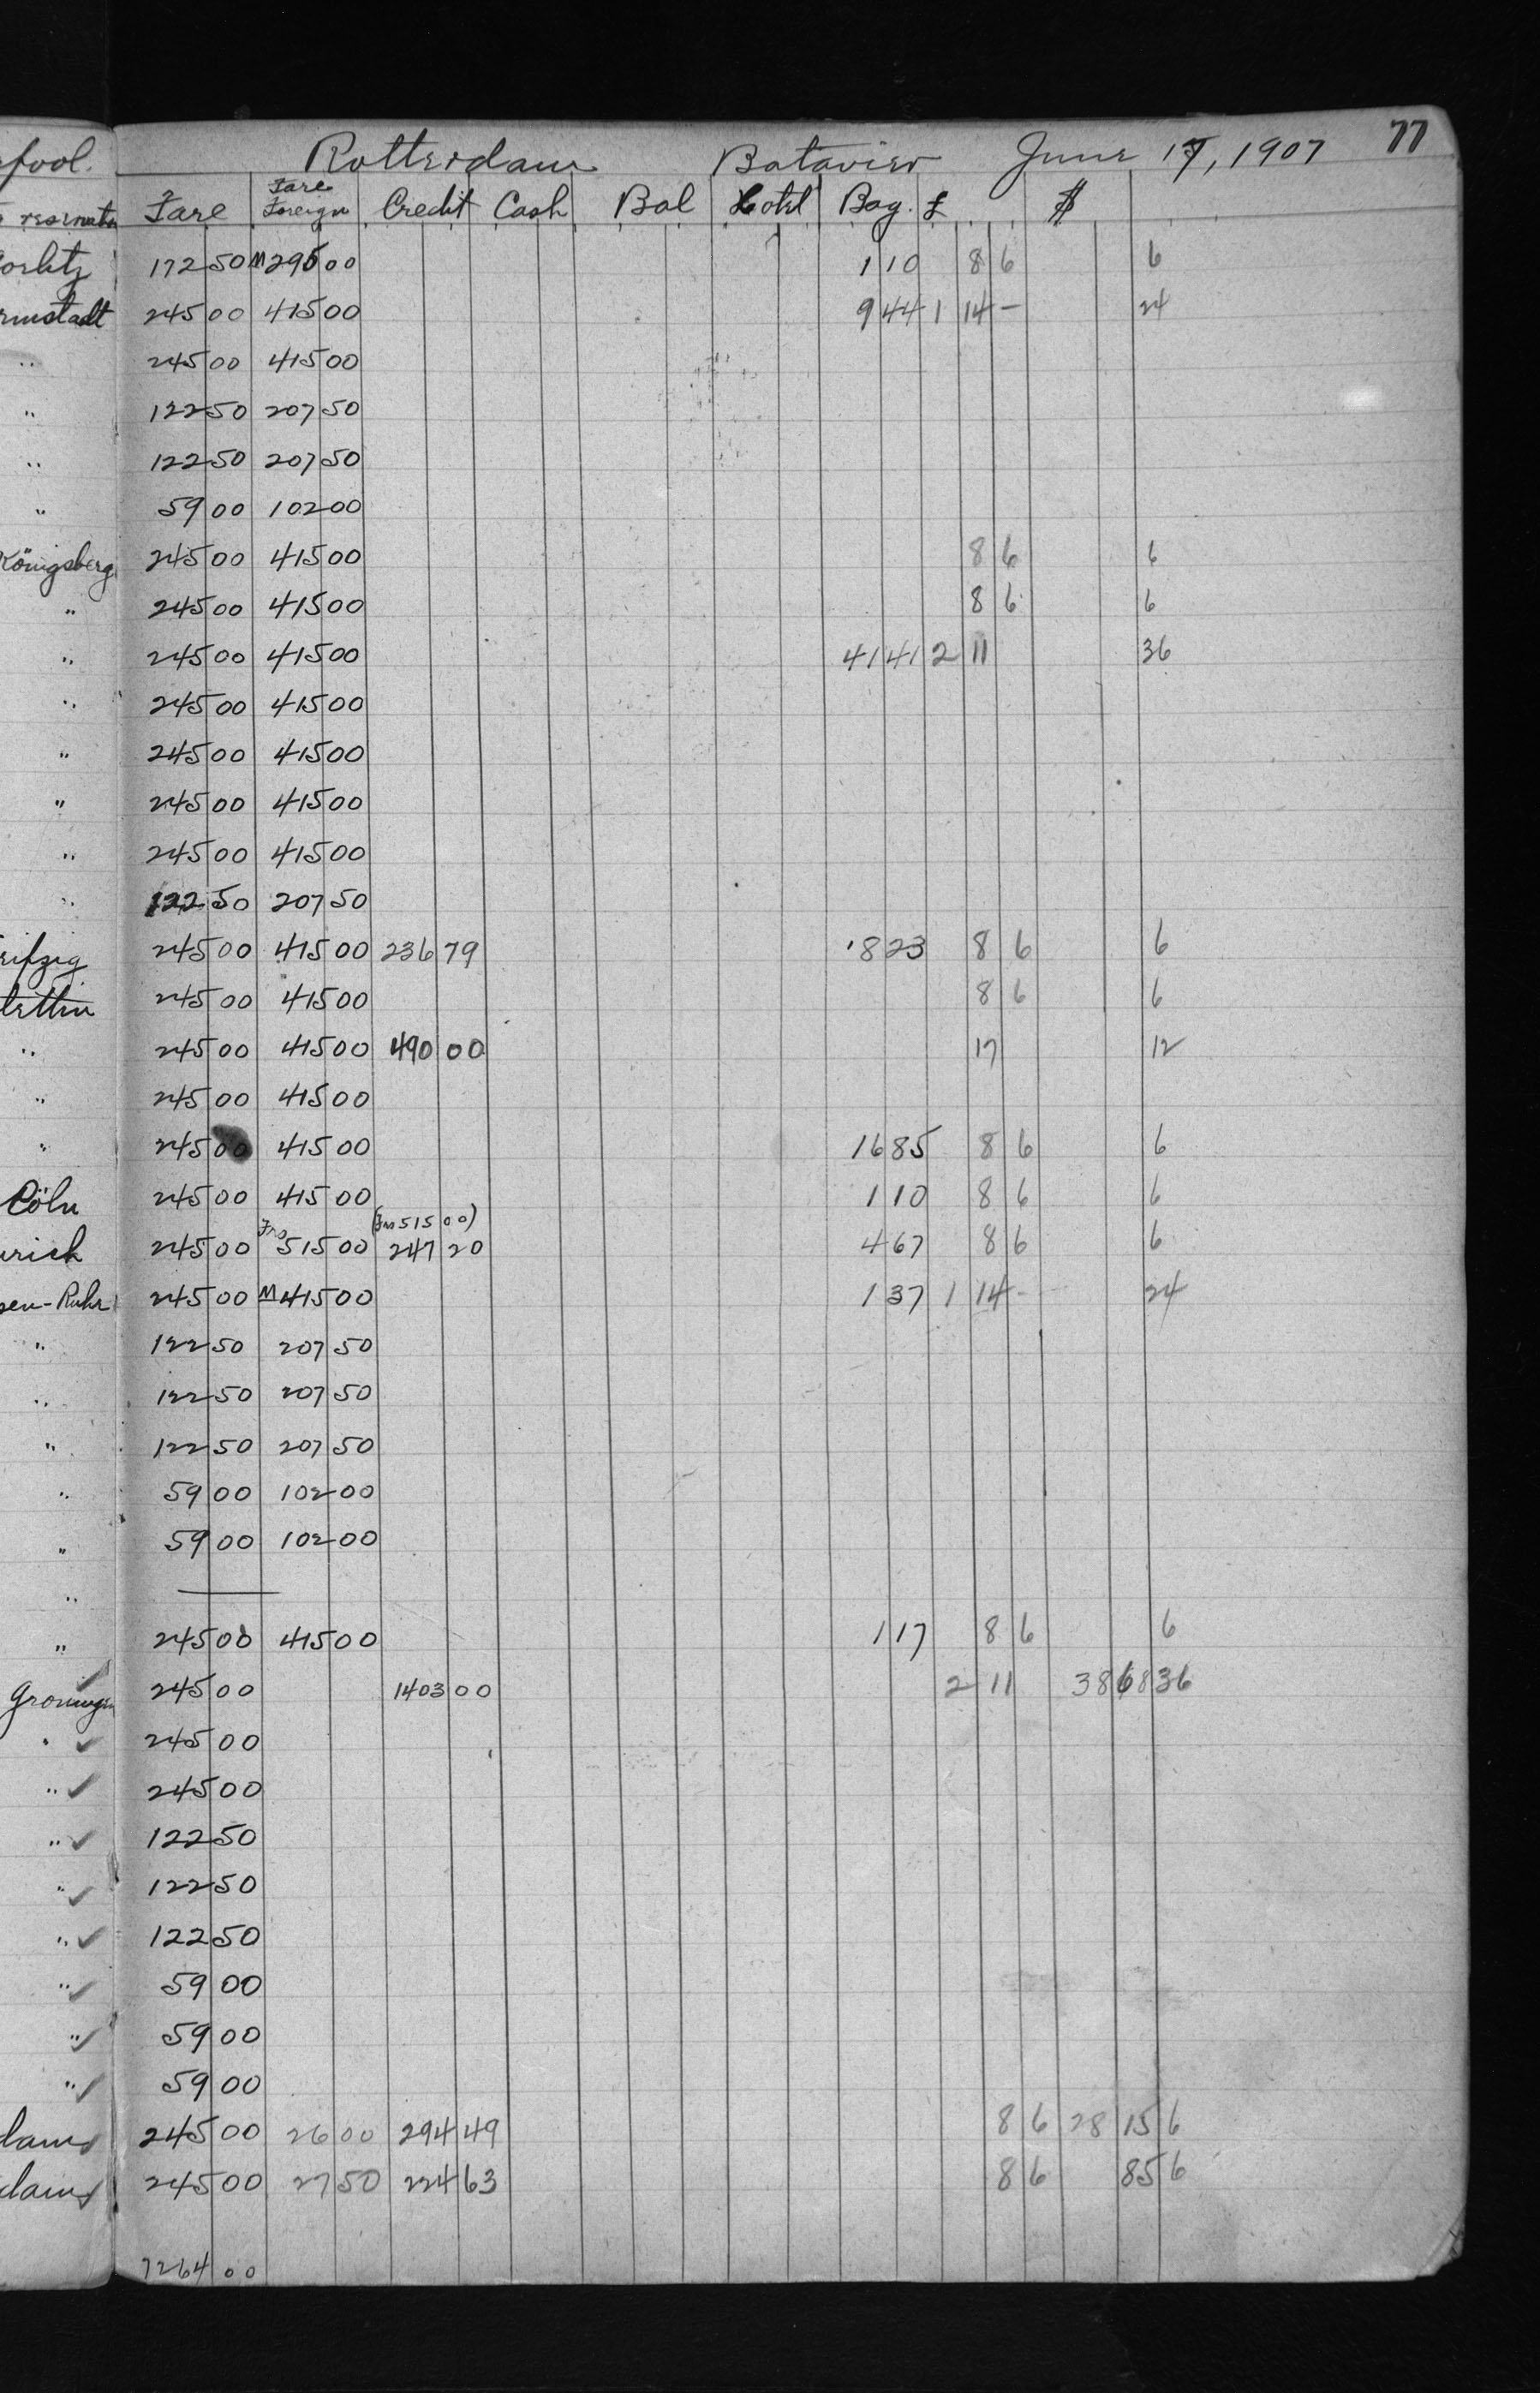 77
rpool. Rotterdam Batavier June 17, 1907
Fare Fare Foreign Credit Cash Bal Hotel Bag. £ $
172 50 M 295 00 1 10 8 6 6
rmstadt 245 00 415 00 9 44 1 14 – 24
" 245 00 415 00
" 122 50 207 50
" 122 50 207 50
" 59 00 102 00
Königsberg 245 00 415 00 8 6 6
" 245 00 415 00 8 6 6
" 245 00 415 00 41 41 2 11 36
" 245 00 415 00
" 245 00 415 00
" 245 00 415 00
" 245 00 415 00
" 122 50 207 50
eipzig 245 00 415 00 236 79 8 23 8 6 6
tettin 245 00 415 00 8 6 6
" 245 00 415 00 490 00 17 12
" 245 00 415 00
" 245 00 415 00 16 85 8 6 6
Cöln 245 00 415 00 1 10 8 6 6
(Frs 515 00)
urich 245 00 Frs 515 00 247 20 4 67 8 6 6
sen-Ruhr 245 00 M 415 00 1 37 1 14 - 24
" 122 50 207 50
" 122 50 207 50
" 122 50 207 50
" 59 00 102 00
" 59 00 102 00
" —
" 245 00 415 00 1 17 8 6 6
Groningen 245 00 1403 00 2 11 386 8 36
" ✓ 245 00
" ✓ 245 00
" ✓ 122 50
" ✓ 122 50
" ✓ 122 50
" ✓ 59 00
" ✓ 59 00
" ✓ 59 00
dam ✓ 245 00 26 00 294 49 8 6 28 15 6
dam ✓ 245 00 27 50 224 63 8 6 85 6
7264 00